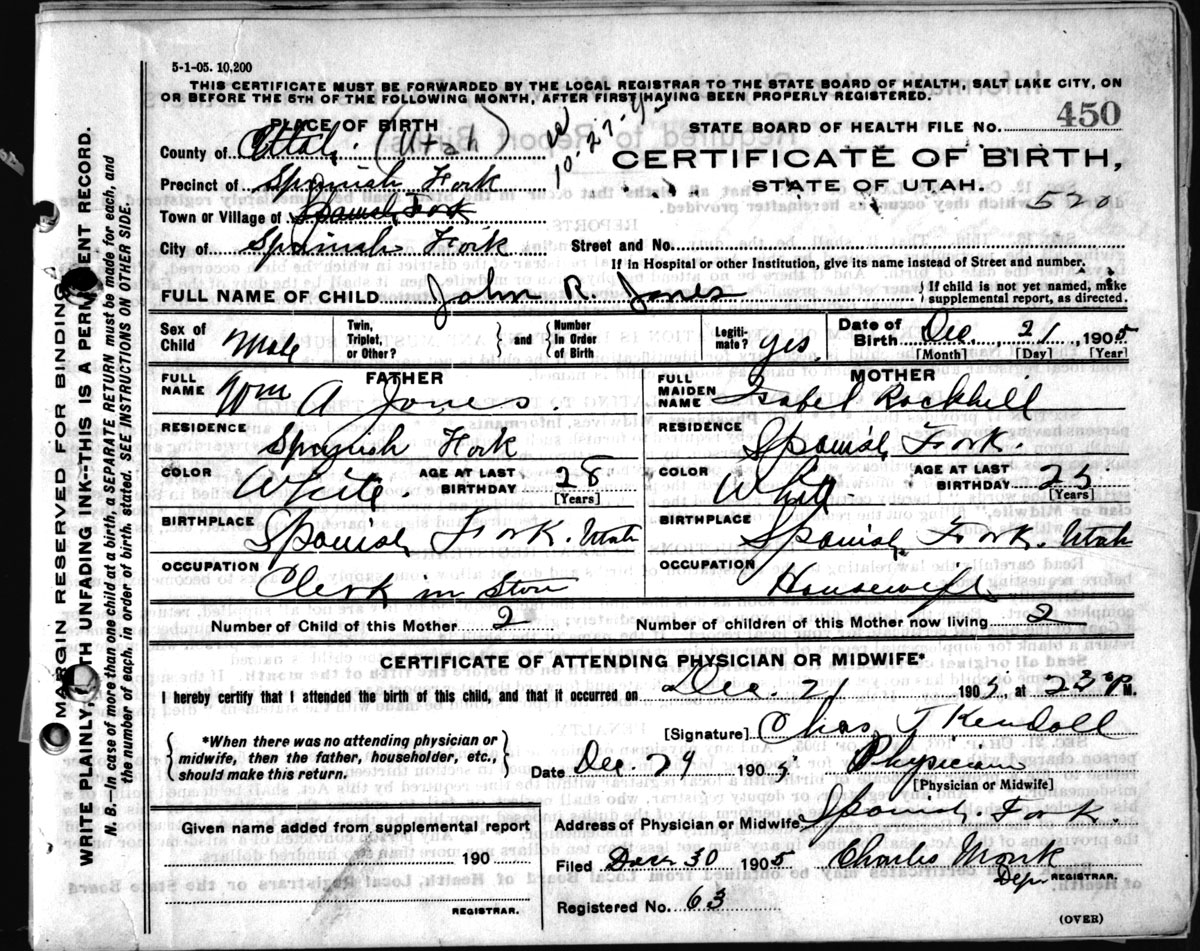 5-1-05. 10,200
THIS CERTIFICATE MUST BE FORWARDED BY THE LOCAL REGISTRAR TO THE STATE BOARD OF HEALTH, SALT LAKE CITY, ON
OR BEFORE THE 5TH OF THE FOLLOWING MONTH, AFTER FIRST HAVING BEEN PROPERLY REGISTERED.
PLACE OF BIRTH
STATE BOARD OF HEALTH FILE NO. 450
County of Utah. (Utah)
CERTIFICATE OF BIRTH,
Precinct of Spanish Fork
STATE OF UTAH.
Town or Village of Spanish Fork
520
City of Spanish Fork Street and No.
If in Hospital or other Institution, give its name instead of Street and number.
FULL NAME OF CHILD John R. Jones
If child is not yet named, make
supplemental report, as directed.
Sex of Child Male Twin, Triplet, or Other? and Number In Order of Birth Legiti- mate? yes Date of Birth Dec. 21, 1905
[Month] [Day] [Year]
FATHER
FULL NAME Wm A Jones.
RESIDENCE Spanish Fork
COLOR White AGE AT LAST BIRTHDAY 28
[Years]
BIRTHPLACE Spanish Fork. Utah
OCCUPATION Clerk in Store
MOTHER
FULL MAIDEN NAME Isabel Rockhill
RESIDENCE Spanish Fork.
COLOR White AGE AT LAST BIRTHDAY
[Years]
BIRTHPLACE Spanish Fork. Utah
OCCUPATION Housewife
Number of Child of this Mother 2 Number of children of this Mother now living 2
CERTIFICATE OF ATTENDING PHYSICIAN OR MIDWIFE*
I hereby certify that I attended the birth of this child, and that it occurred on Dec. 21 1905, at P M.
[Signature] Chas J Kendall
*When there was no attending physician or
midwife, then the father, householder, etc.,
should make this return.
Date Dec. 29 1905 Physician
[Physician or Midwife]
Address of Physician or Midwife Spanish Fork.
Given name added from supplemental report
190
REGISTRAR.
Filed Dec 30 1905 Charles Monk
Depu REGISTRAR.
Registered No. 63
(OVER)
MARGIN RESERVED FOR BINDING
WRITE PLAINLY, WITH UNFADING INK--THIS IS A PERMANENT RECORD.
N. B.--In case of more than one child at a birth, a SEPARATE RETURN must be made for each, and
the number of each, in order of birth, stated. SEE INSTRUCTIONS ON OTHER SIDE.